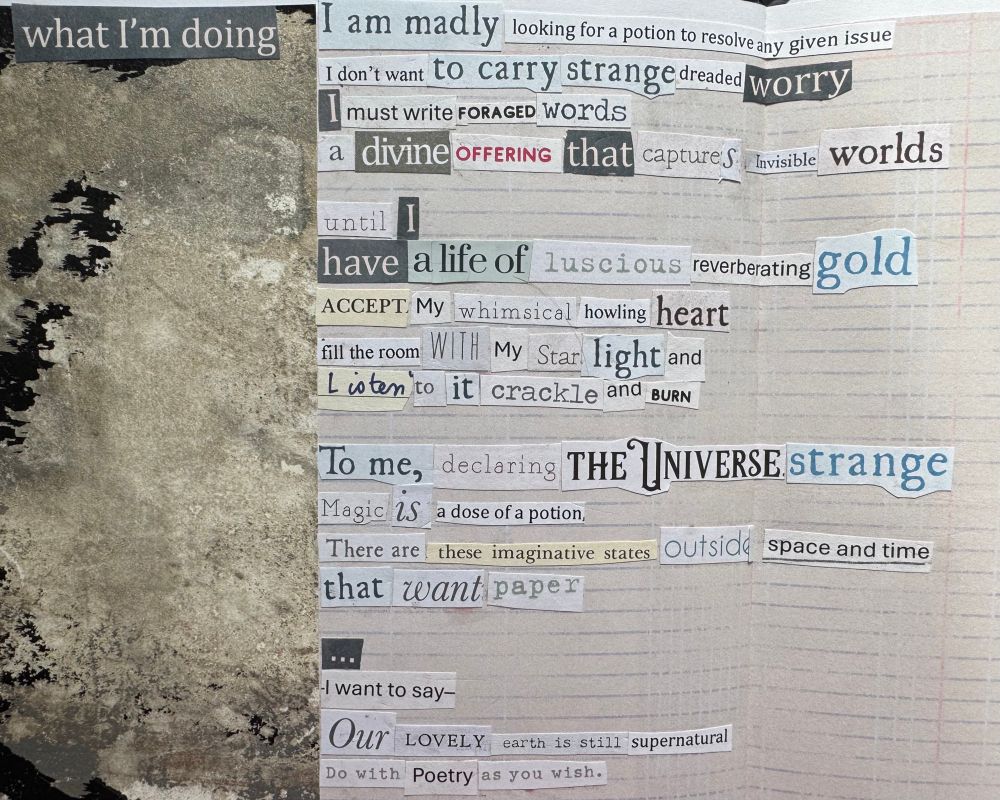 what I'm doing
I am madly looking for a potion to resolve any given issue
I don't want to carry strange dreaded worry
I must write FORAGED words
a divine OFFERING that captures Invisible worlds
until I
have a life of luscious reverberating gold
ACCEPT. My whimsical howling heart
fill the room WITH My Star light and
Listen to it crackle and BURN
To me, declaring THE UNIVERSE strange
Magic is a dose of a potion,
There are these imaginative states outside space and time
that want paper
...
I want to say—
Our LOVELY earth is still supernatural
Do with Poetry as you wish.